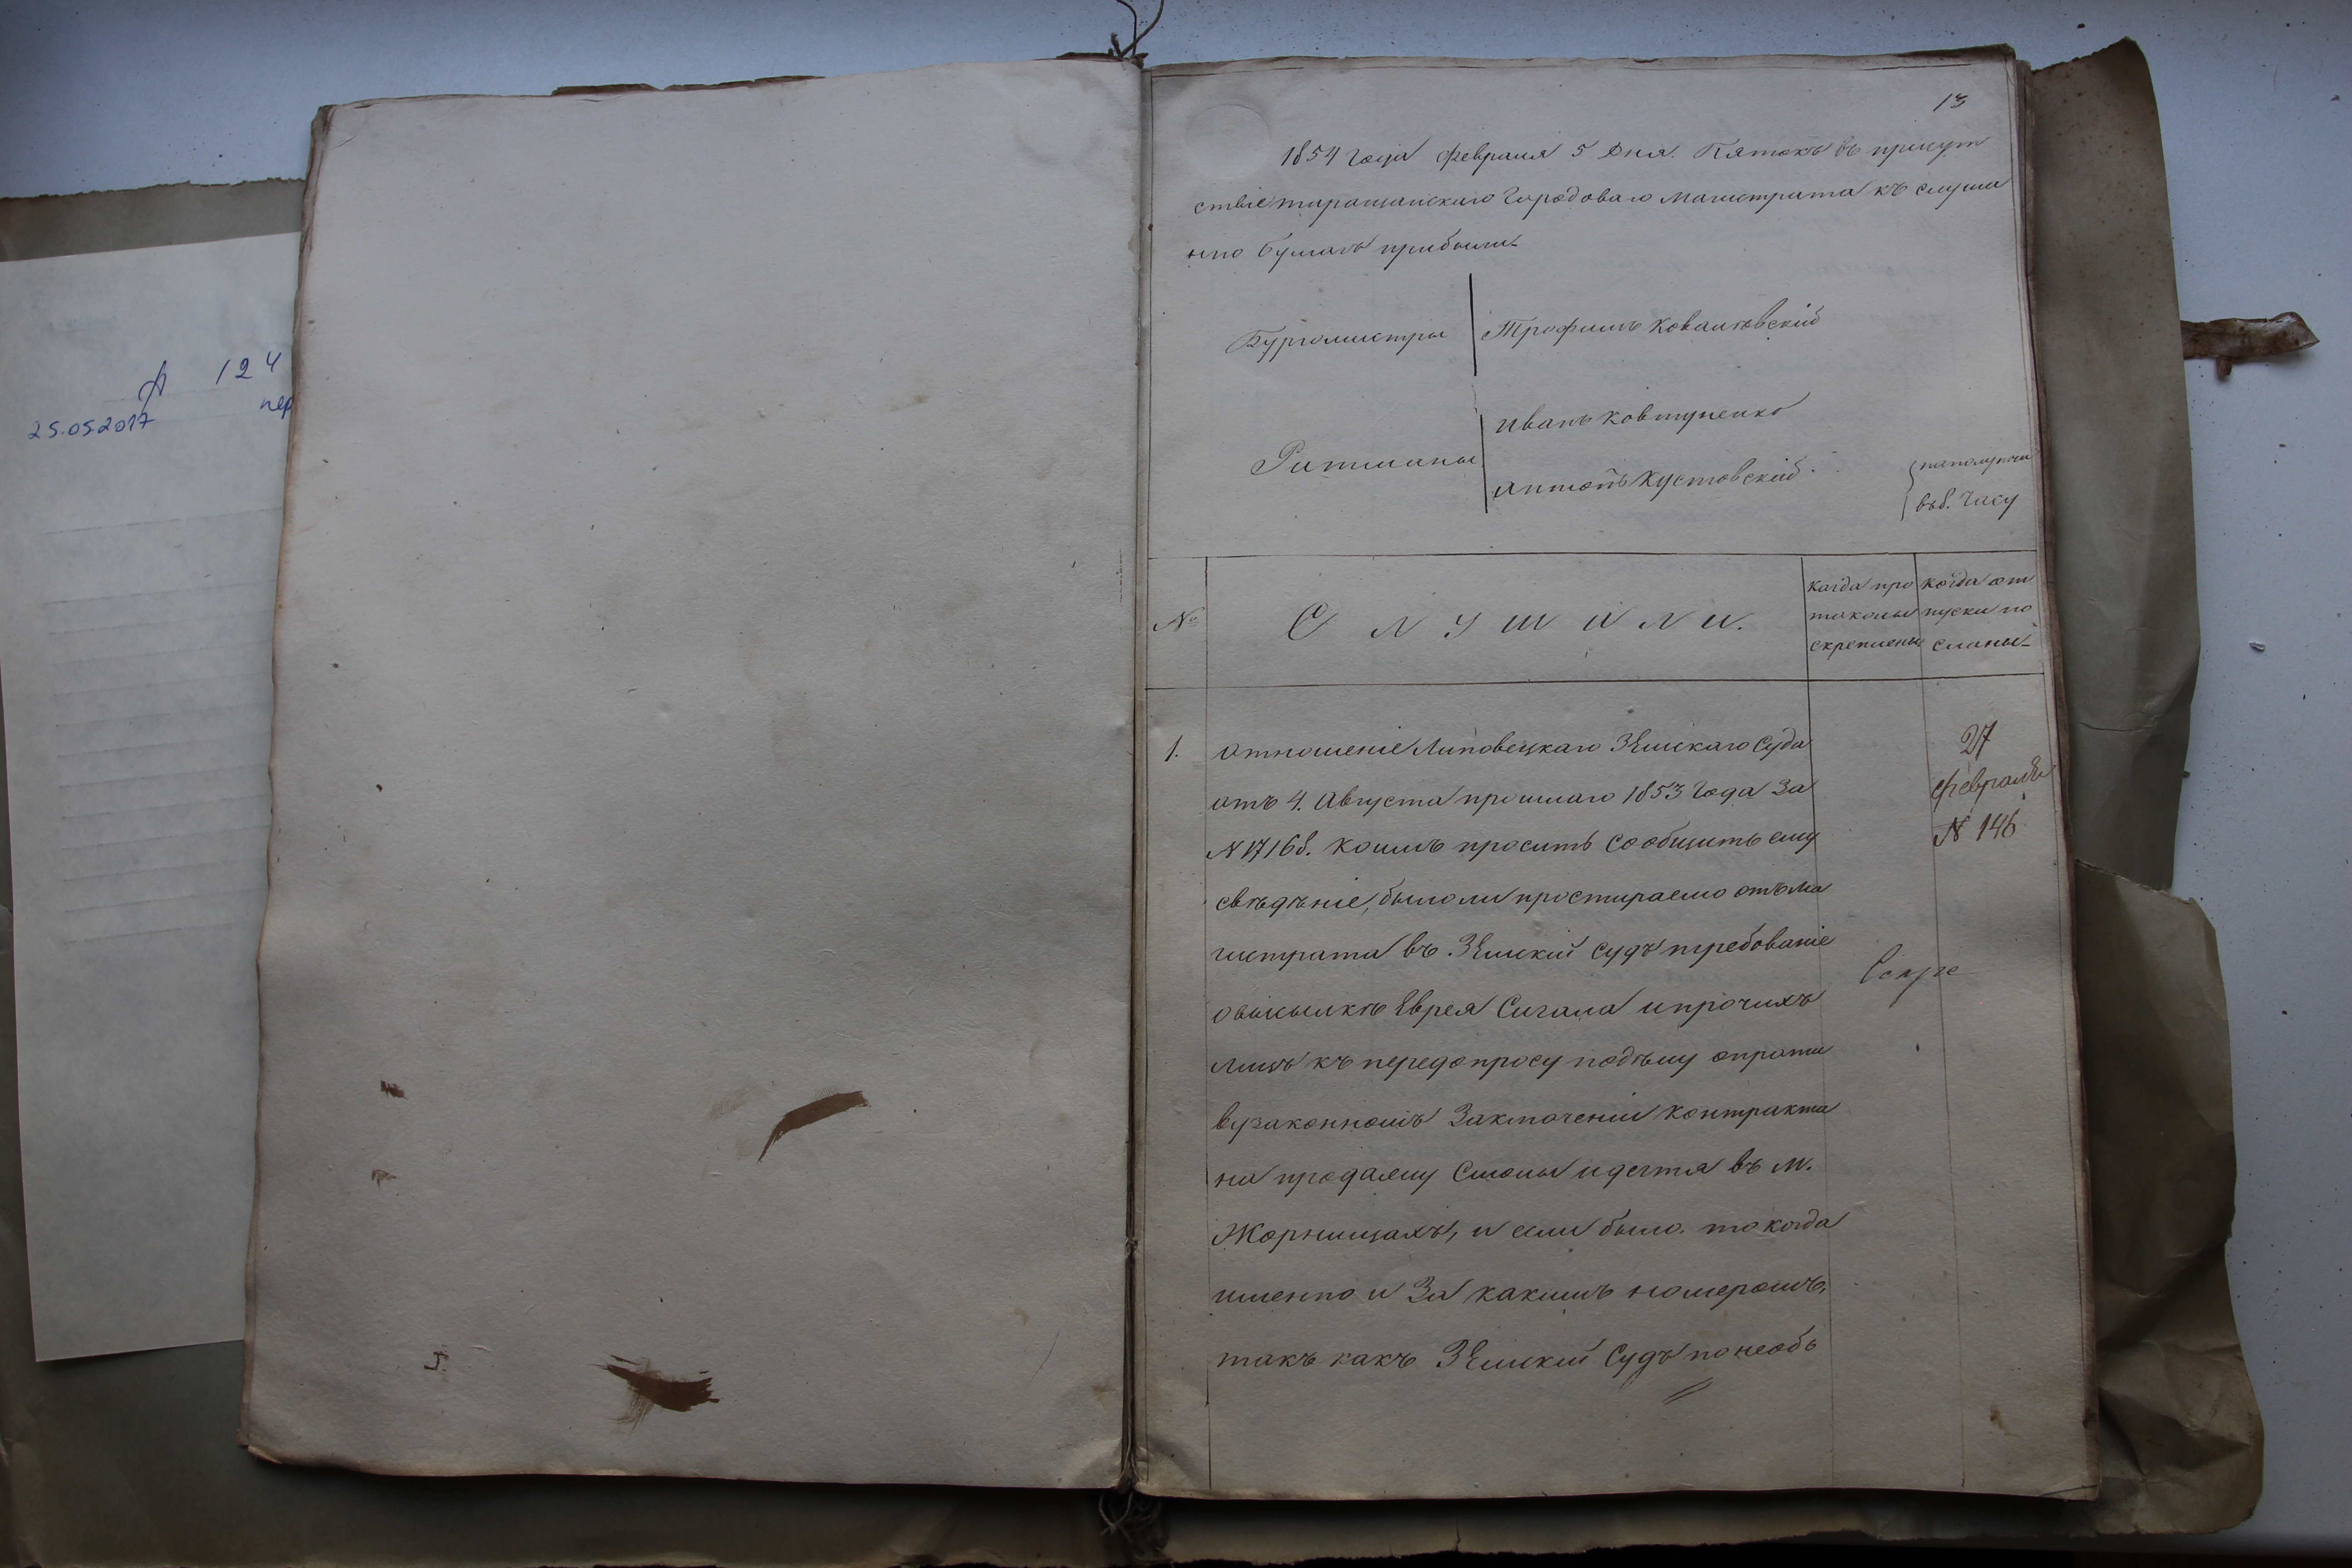 124
25.05.2017
пер
13
1854 года февраля 5 дня. Пятокъ въ присут
ствіе таращанскаго Городоваго магистрата къ слуша
нію бумагъ прибыли
Бургомистры
Трофимъ Ковальковскій
Ратманы
Иванъ Ковтуненко
Антонъ Кустовскій
пополуночи
въ 8. часу
№
Слушали.
когда про
токолы
скреплены
когда от
пуски по
сланы
1. отношеніе Липовецкаго Земскаго Суда
отъ 4. Августа прошлаго 1853 года за
N 17168. коимъ проситъ сообщить ему
свѣдѣніе, было ли простираемо отъ ма
гистрата въ Земскій Судъ требованіе
о высылкѣ Еврея Сигала и прочихъ
лицъ къ передопросу по дѣлу о проти
вузаконномъ заключеніи контракта
на продажу Смолы и дегтя въ м.
Жорнищахъ, и если было. то когда
именно и за какимъ номеромъ,
такъ какъ Земскій Судъ по необъ
27
февраля
N 146